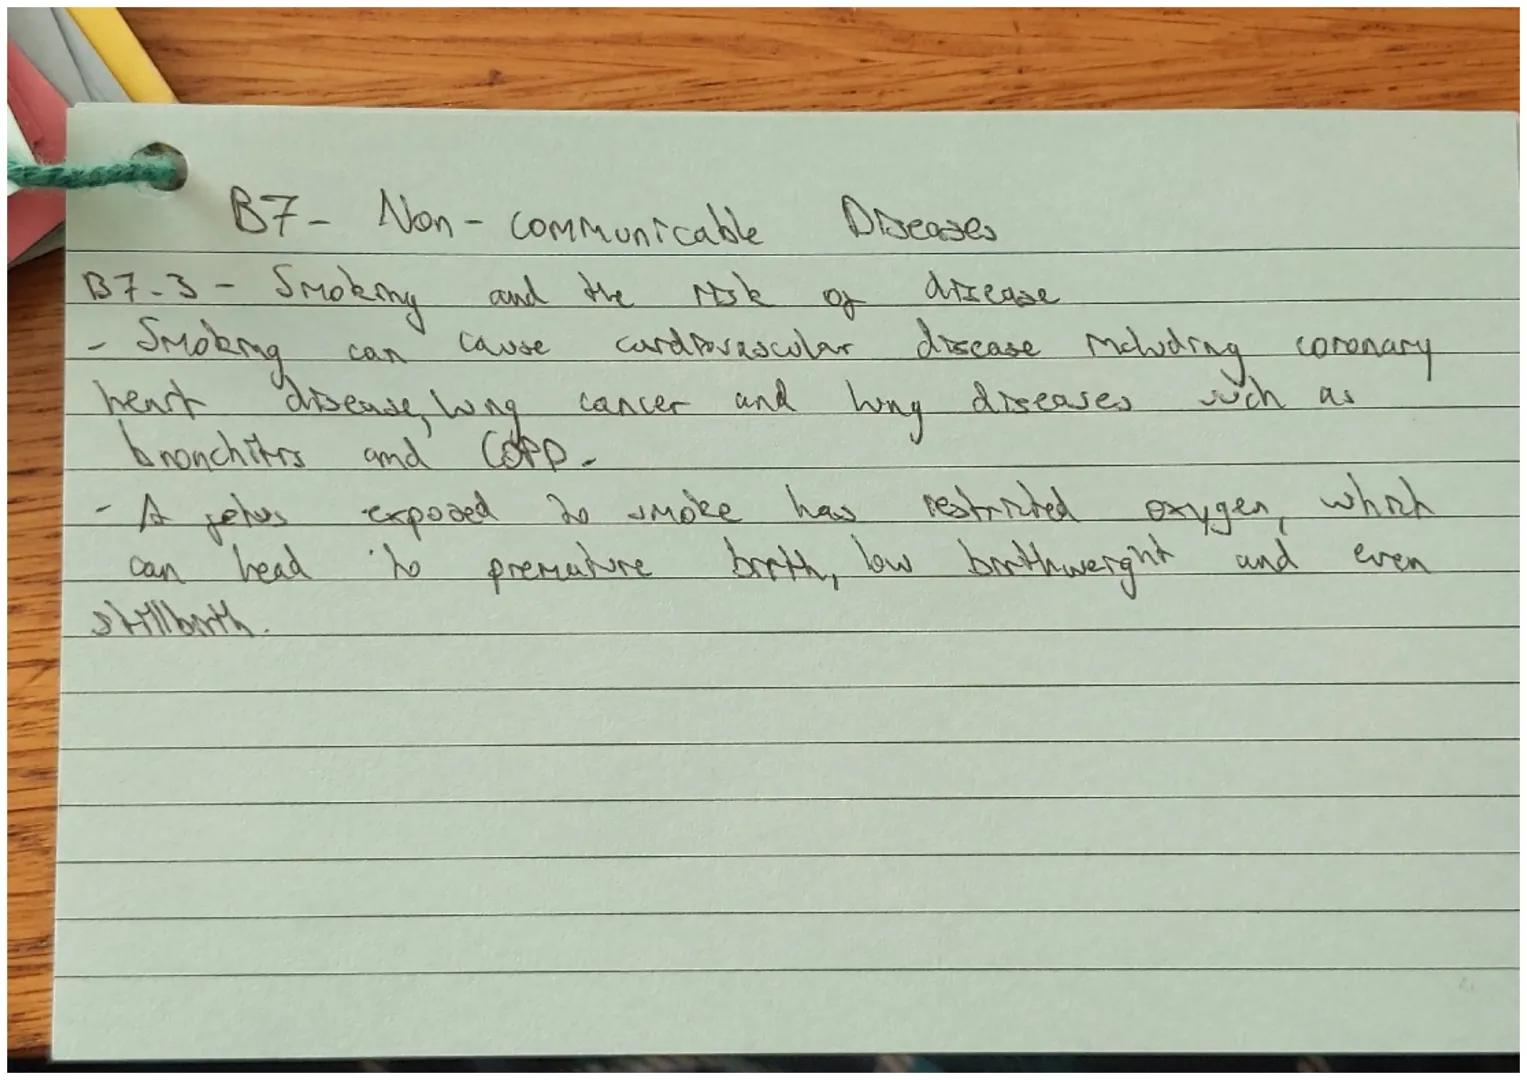 B7 - Non - communicable Diseases
B7.3 - Smoking and the risk of disease
- Smoking can cause cardiovascular disease including coronary
heart disease, lung cancer and lung diseases such as
bronchitis and COPD.
- A fetus exposed to smoke has restricted oxygen, which
can lead to premature birth, low birthweight and even
stillbirth.